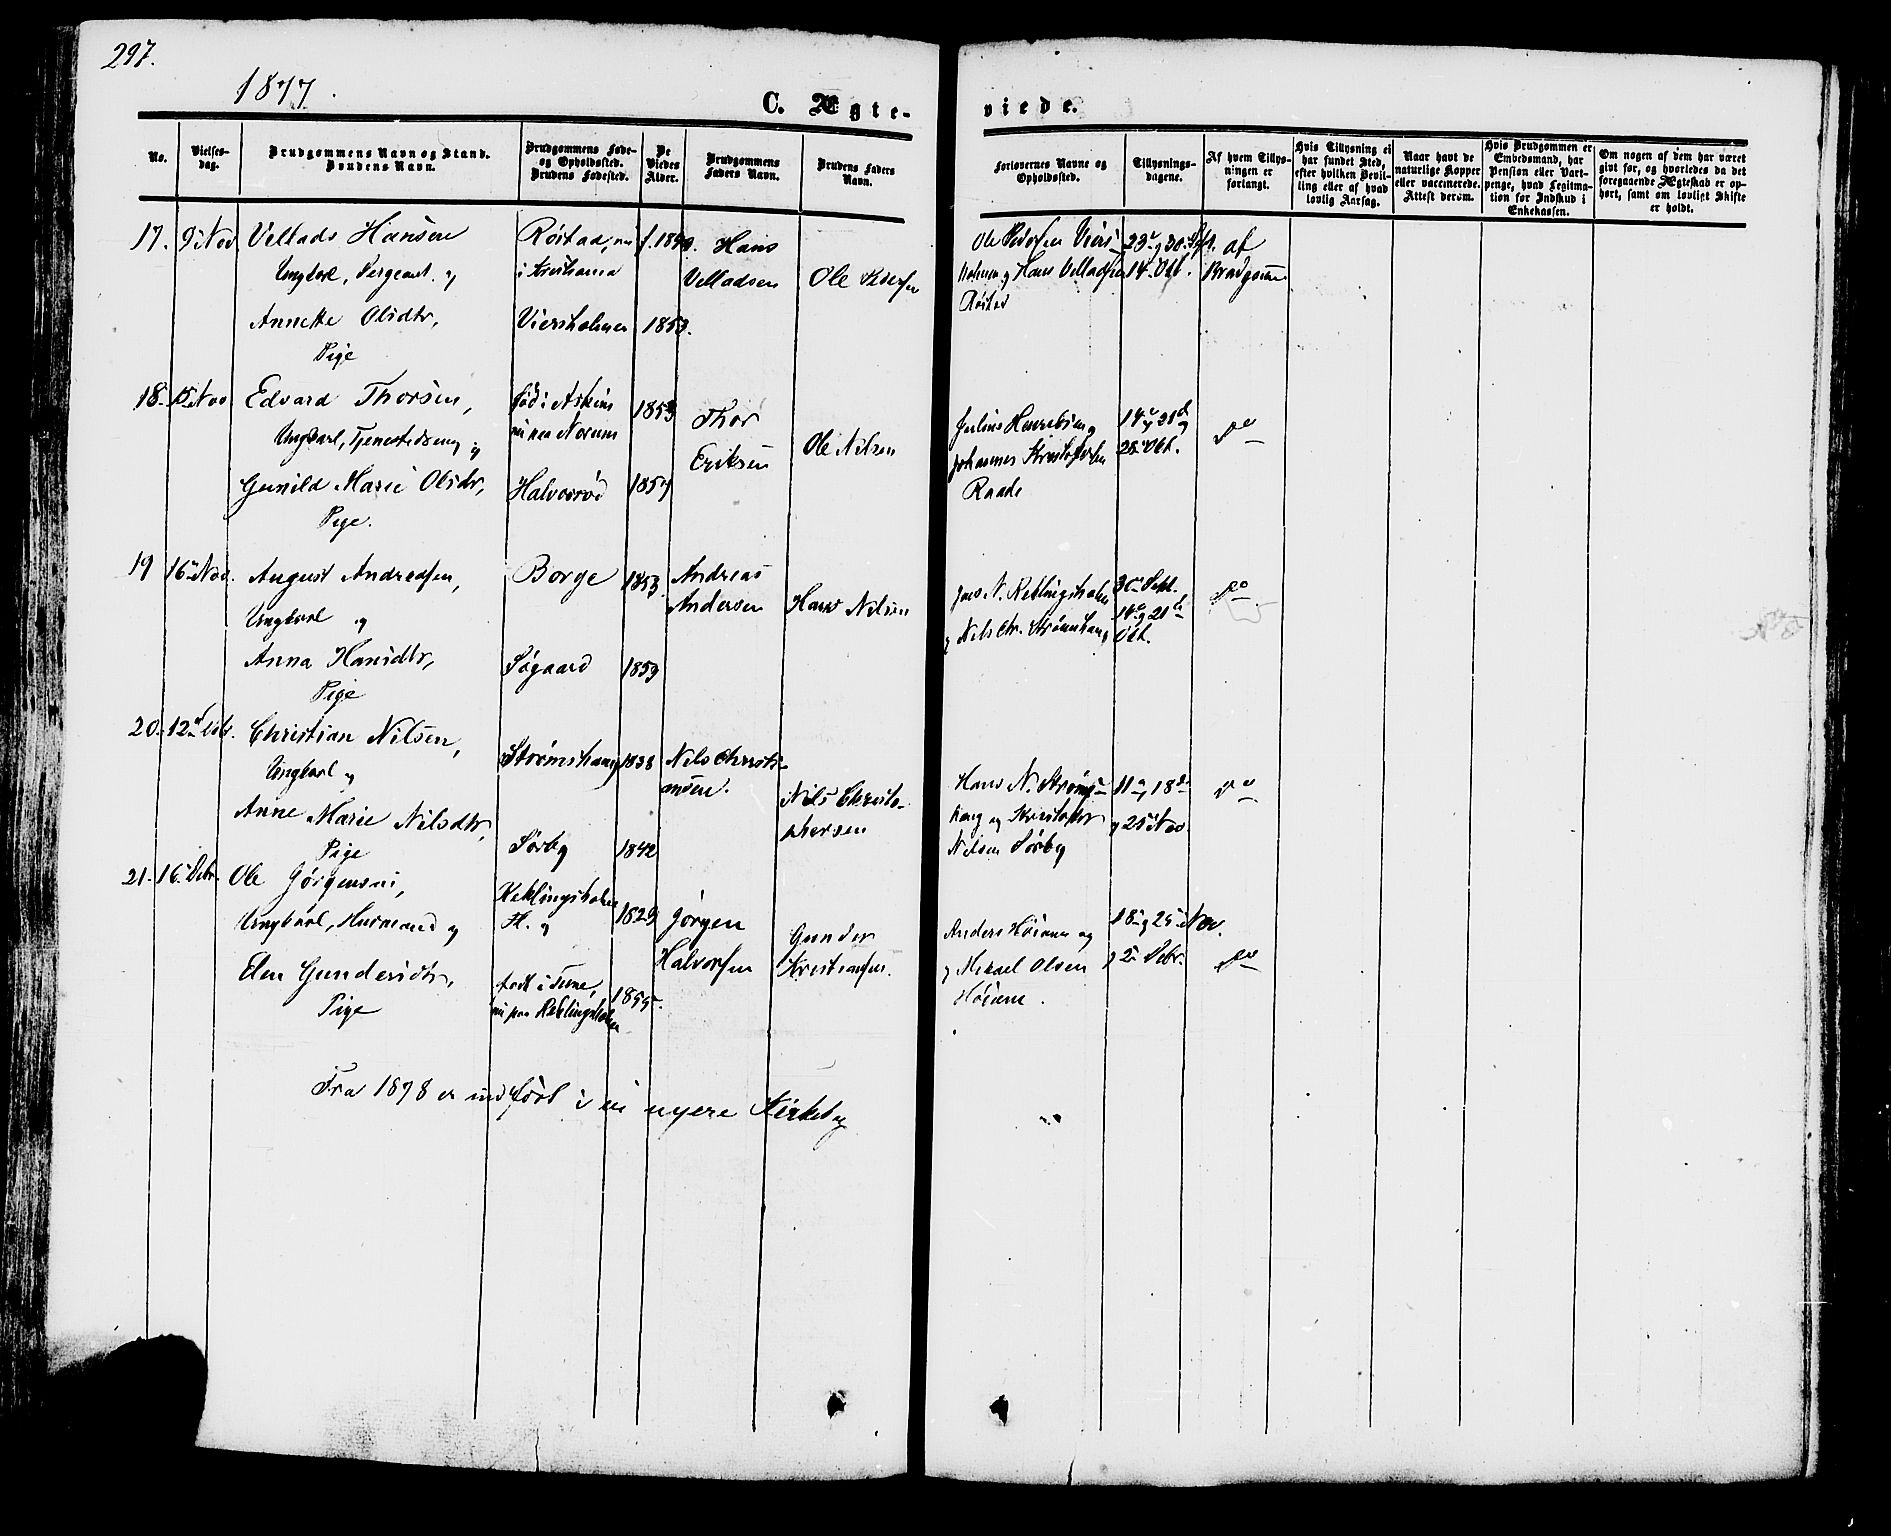 297.
1877.
C. Ægte-
viede.
No.
Vielses-
dag.
Brudgommens Navn og Stand.
Brudens Navn.
Brudgommens Føde-
og Opholdssted.
Brudens Fødested.
De
Viedes
Alder.
Brudgommens
Faders Navn.
Brudens Faders
Navn.
Forlovernes Navne og
Opholdssted.
Tillysnings-
dagene.
Af hvem Tillys-
ningen er
forlangt.
Hvis Tillysning ei
har fundet Sted,
efter hvilken Bevil-
ling eller af hvad
lovlig Aarsag.
Naar havt de
naturlige Kopper
eller vaccinerede.
Attest derom.
Hvis Brudgommen er
Embedsmand, har
Pension eller Vart-
penge, hvad Legitima-
tion for Indskud i
Enkekassen.
Om nogen af dem har været
givt før, og hvorledes da det
foregaaende Ægteskab er op-
hørt, samt om lovligt Skifte
er holdt.
17. 9 Nov
Vellads Hansen
Ungkarl, Sergeant. og
Annette Olsdtr,
Pige
Röstad, nu
i Kristiania
Viersholmen
1853.
Hans
Velladsen
Ole Pedersen
Ole Pedersen Viers-
holmen og Hans Velladsen
Röstad
23 og 30 Sept.
14 Oct.
af
Brudgommen
18. 15 Nov
Edvard Thorsen,
Ungkarl, Tjenestedreng og
Gunild Marie Olsdtr,
Pige.
född i Askim
nu paa Norum
Halvorsrød
1853
1857
Thor
Eriksen
Ole Nilsen
Johannes Kristofersen
Raade
14 og 21
28 Okt.
do
19 16 Nov.
August Andreasen,
Ungkarl og
Anna Hansdtr,
Pige
Borge
Søgaard
1853.
1859
Andreas
Andersen
Hans Nilsen
Jens N. Keklingsholen
og Nils Chr. Strømshaug
30 Sept.
14 og 21
Okt.
do
20. 12 Debr.
Christian Nilsen,
Ungkarl og
Anne Marie Nilsdtr,
Pige
Strømshaug
Sørby
1838
1842
Nils Christi-
ansen.
Nils Christo-
phersen
Hans N. Strøms-
haug og Kristofer
Nilsen Sørby
11 og 18
og 25 Nov
do
21. 16 Debr.
Ole Jörgensen,
Ungkarl, Husmand og
Elen Gundersdtr,
Pige
Keklingsholen
født i Tune,
nu paa Keklingsholen
1829
1855.
Jörgen
Halvorsen
Gunder
Kristiansen.
Anders Höienn og
og Mikael Olsen
Höienn.
18 og 25 Nov.
og 2 Debr.
do
Fra 1878 er indført i en nyere Kirkebog